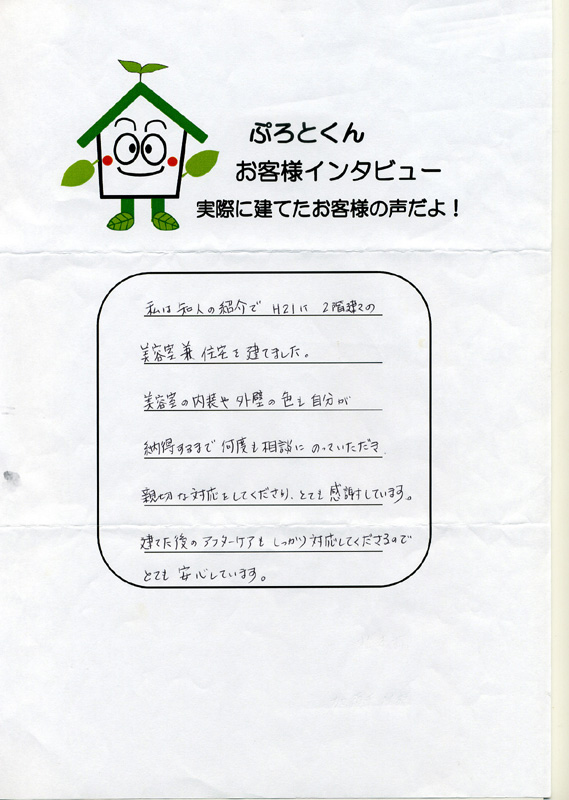 ぷろとくん
お客様インタビュー
実際に建てたお客様の声だよ！
私は知人の紹介で H21に 2階建ての
美容室兼 住宅を建てました。
美容室の内装や外壁の色も自分が
納得するまで何度も相談にのっていただき
親切な対応をしてくださり、とても感謝しています。
建てた後のアフターケアもしっかり対応してくださるので
とても安心しています。